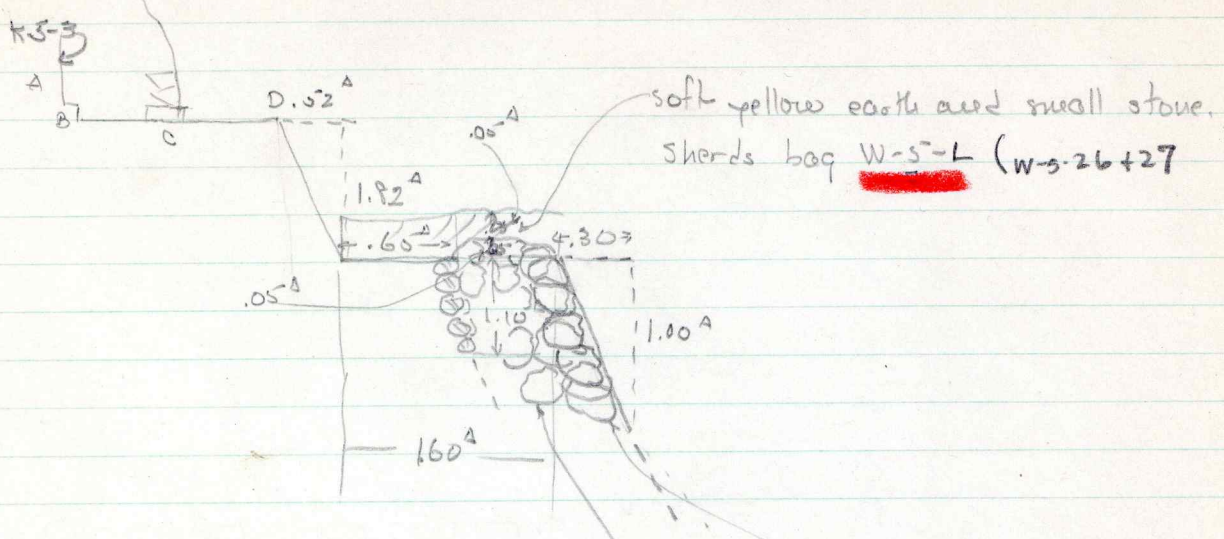 K5-3
A
B
C
D .52 A
soft yellow earth and small stone.
.05 A
Sherds bag W-5-L (W-5-26+27
1.92 A
.60 A
4.30
.05 A
1.10
1.00 A
1.60 A